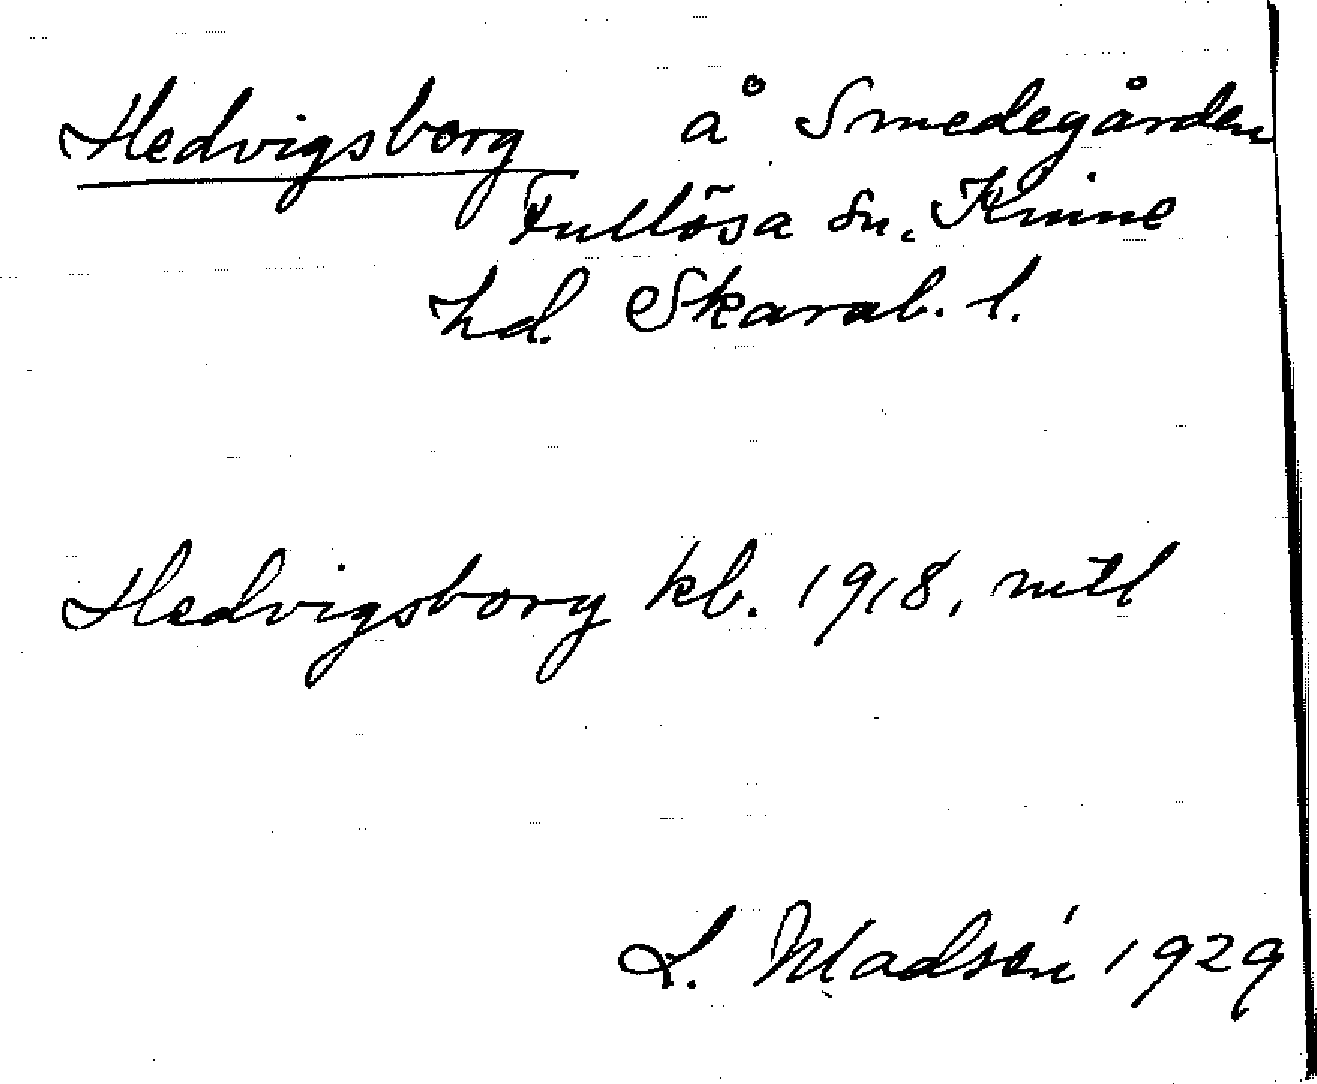 Hedvigsborg å Smedegården
Fullösa sn. Kinne
hd. Skarab. l.
Hedvigsborg kb. 1918, mtl
L. Madsén 1929